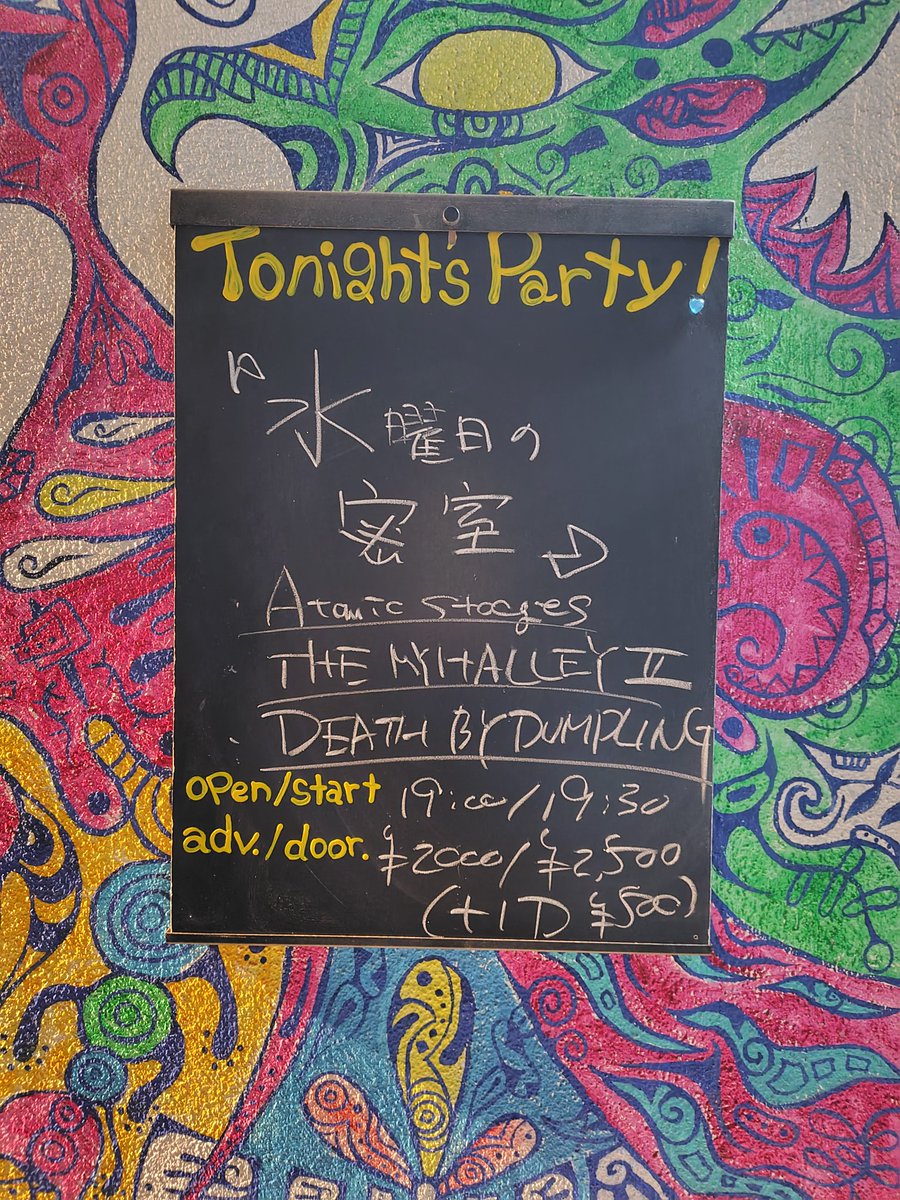 Tonight's Party!
『水曜日の
密室』
・Atomic stooges
・THE MYHALLEY II
・DEATH BY DUMPLING
open/start 19:00/19:30
adv./door. ¥2000/¥2,500
(+1D ¥500)